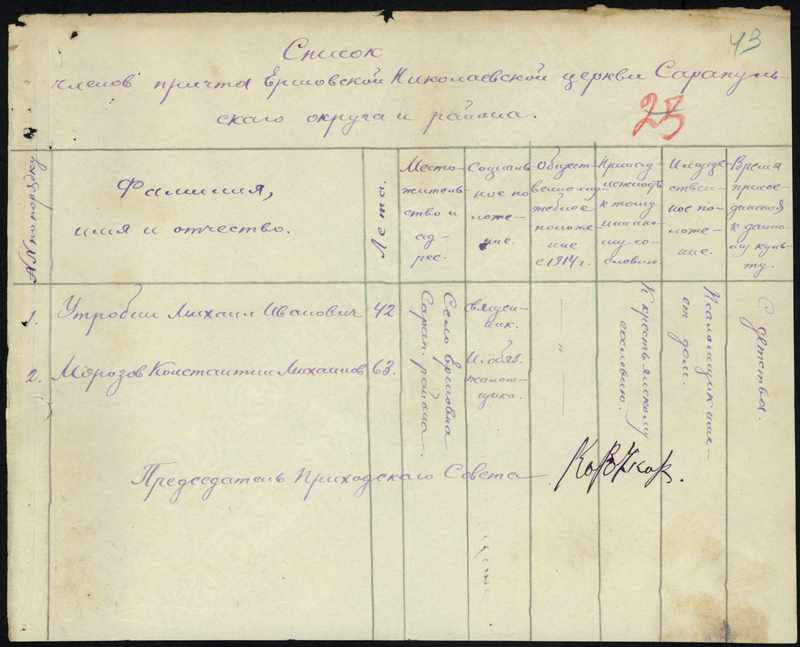 43
Список
членов причта Ершовской Николаевской церкви Сарапуль-
ского округа и района.
23
№№ по порядку
Фамилия,
имя и отчество.
Лета.
Место-
житель-
ство и
ад-
рес.
Социаль-
ное по
ложе-
ние.
Общест-
венно слу-
жебное
положе-
ние
с 1914 г.
Принад-
лежность
к тому
или ино
му со-
словию.
Имуще
ствен-
ное по-
ложе-
ние.
Время
присое-
динения
к данно
му куль-
ту.
1.
Утробин Михаил Иванович
42
Село Ершовка
Сарап. района
Священ-
ник.
"
К крестьянскому
сословию.
Псаломщик име-
ет дом.
С детства.
2.
Морозов Константин Михайлов
63.
И. обяз.
псалом-
щика.
Председатель Приходского Совета